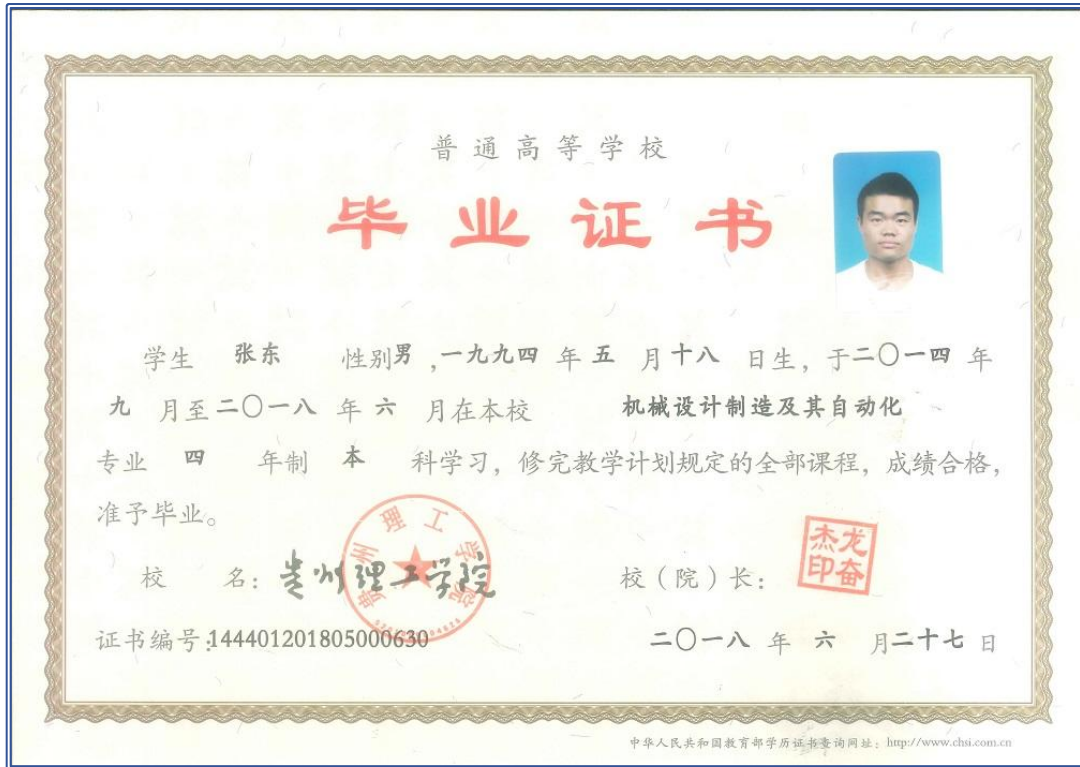 普通高等学校
毕业证书
学生 张东 性别男，一九九四年五月十八日生，于二〇一四年
九月至二〇一八年六月在本校 机械设计制造及其自动化
专业 四 年制 本 科学习，修完教学计划规定的全部课程，成绩合格，
准予毕业。
贵州理工学院
龙奋杰印
校 名：贵州理工学院 校（院）长：
证书编号:144401201805000630 二〇一八年六月二十七日
中华人民共和国教育部学历证书查询网址：http://www.chsi.com.cn